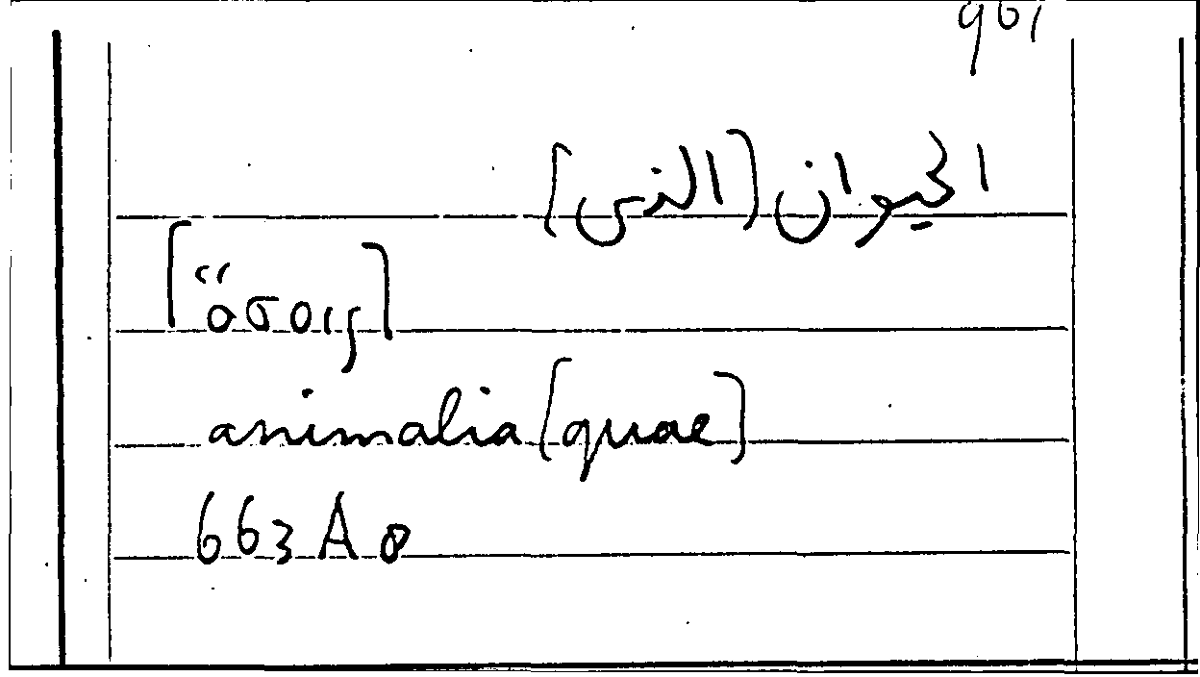 961
الحيوان [الذى]
[ὅσοις]
animalia [quae]
663 A 8